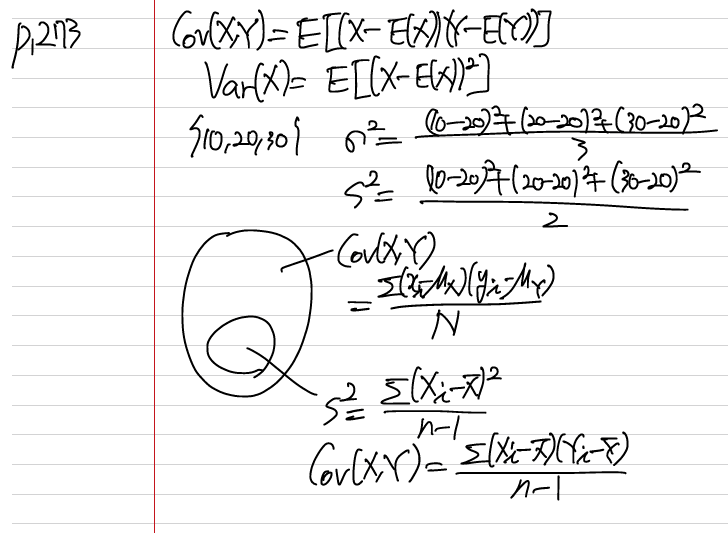 p,273
Cov(X,Y)=E[(X-E(X))(Y-E(Y))]
Var(X)=E[(X-E(X))²]
{10,20,30} σ²=((10-20)²+(20-20)²+(30-20)²)/3
s²=((10-20)²+(20-20)²+(30-20)²)/2
Cov(X,Y)
=Σ(xᵢ-μₓ)(yᵢ-μ_Y)/N
s²=Σ(Xᵢ-X̄)²/(n-1)
Cov(X,Y)=Σ(Xᵢ-X̄)(Yᵢ-Ȳ)/(n-1)